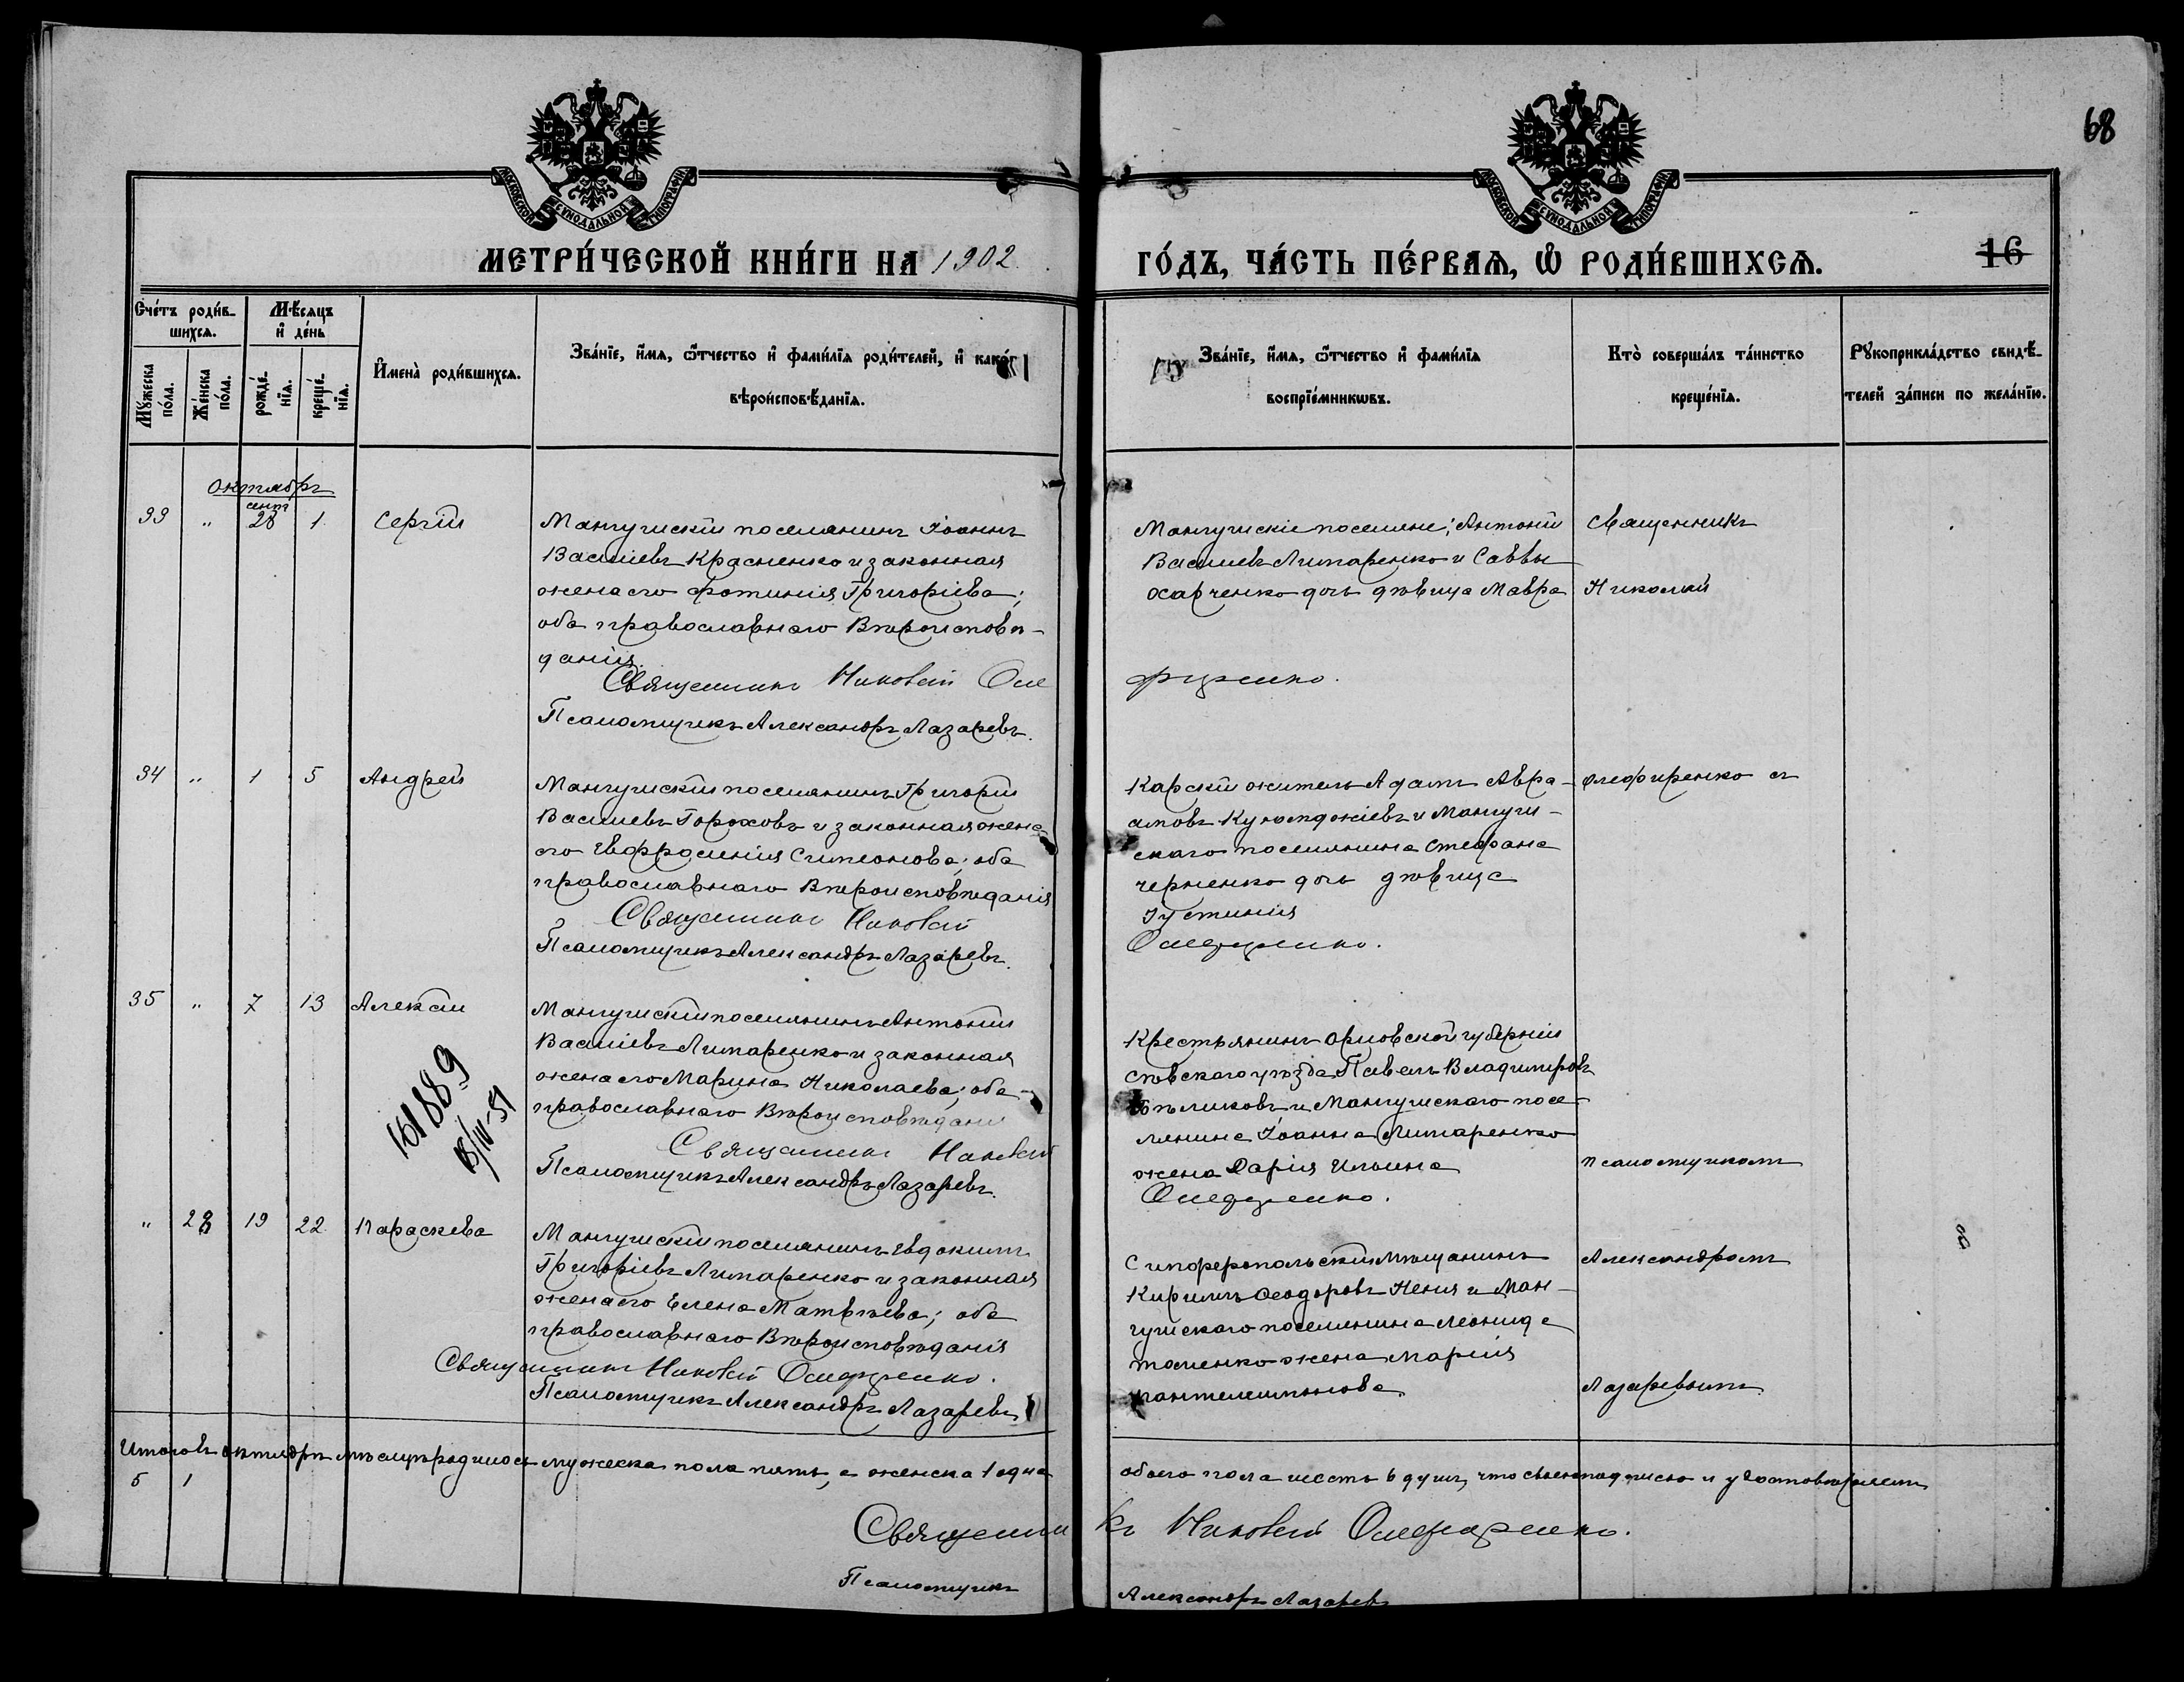 68
МОСКОВСКОЙ СѴНОДАЛЬНОЙ ТИПОГРАФІИ
МОСКОВСКОЙ СѴНОДАЛЬНОЙ ТИПОГРАФІИ
МЕТРИ́ЧЕСКОЙ КНИ́ГИ НА 1902
ГО́ДЪ, ЧА́СТЬ ПЕ́РВАѦ, Ѡ РОДИ́ВШИХСѦ.
16
Сче́тъ роди́в-
шихсѧ.
Мꙋжеска по́ла.
Же́нска по́ла.
Мѣ́сѧцъ
и҆ де́нь
рожде́-нїѧ.
креще́-нїѧ.
И҆мена̀ роди́вшихсѧ.
Зва́нїе, и҆́мѧ, ѻ҆́тчество и҆ фами́лїѧ роди́телей, и҆ како́г
вѣроисповѣ́данїѧ.
Зва́нїе, и҆́мѧ, ѻ҆́тчество и҆ фами́лїѧ
воспрїе́мникѡвъ.
Кто̀ соверша́лъ та́инство
креще́нїѧ.
Рꙋкоприкла́дство свидѣ́-
телей за́писи по жела́нїю.
Октябрь
33 " сент 28 1 Сергій
Мангушскій поселянинъ Іоаннъ
Василіевъ Красненко и законная
жена его Фотинія Григоріева;
оба православнаго Вѣроисповѣ-
данія.
Священникъ Николай Оле
Псаломщикъ Александръ Лазаревъ.
Мангушскіе поселяне: Антоній
Василіевъ Литаренко и Саввы
Харченко дочь дѣвица Мавра
фиренко.
Священникъ
Николай
34 " 1 5 Андрей
Мангушскій поселянинъ Григорій
Василіевъ Гороховъ и законная жена
его Евфросинія Симеонова; оба
православнаго Вѣроисповѣданія
Священникъ Николай
Псаломщикъ Александръ Лазаревъ.
Карскій житель Адамъ Авра-
амовъ Куюмджіевъ и Мангуш-
скаго поселянина Стефана
Черненко дочь дѣвица
Іустинія
Олефиренко.
Олефиренко съ
35 " 7 13 Алексій
161889
В/IV-51
Мангушскій поселянинъ Антоній
Василіевъ Литаренко и законная
жена его Марина Николаева; оба
православнаго Вѣроисповѣдані
Священникъ Николай
Псаломщикъ Александръ Лазаревъ.
Крестьянинъ Орловской губерніи
Сѣвскаго уѣзда Павелъ Владиміровъ
Бѣликовъ и Мангушскаго посе-
лянина Іоанна Литаренко
жена Дарія Ильина
Олефиренко.
псаломщикомъ
" 28 19 22 Параскева
Мангушскій поселянинъ Евдокимъ
Григоріевъ Литаренко и законная
жена его Елена Матвѣева; оба
православнаго Вѣроисповѣданія
Священникъ Николай Олефиренко.
Псаломщикъ Александръ Лазаревъ
Симферопольскій мѣщанинъ
Кириллъ Ѳеодоровъ Кеня и Ман-
гушскаго поселянина Леонида
жена Марія
пантелеимонова
Александромъ
Лазаревымъ
Итого въ октябрѣ мѣсяцѣ родилось мужеска пола пять, а женска 1 одна
5 1
обоего пола шесть 6 душъ, что своею подписью и удостовѣряемъ
Священникъ Николай Олефиренко.
Псаломщикъ
Александръ Лазаревъ